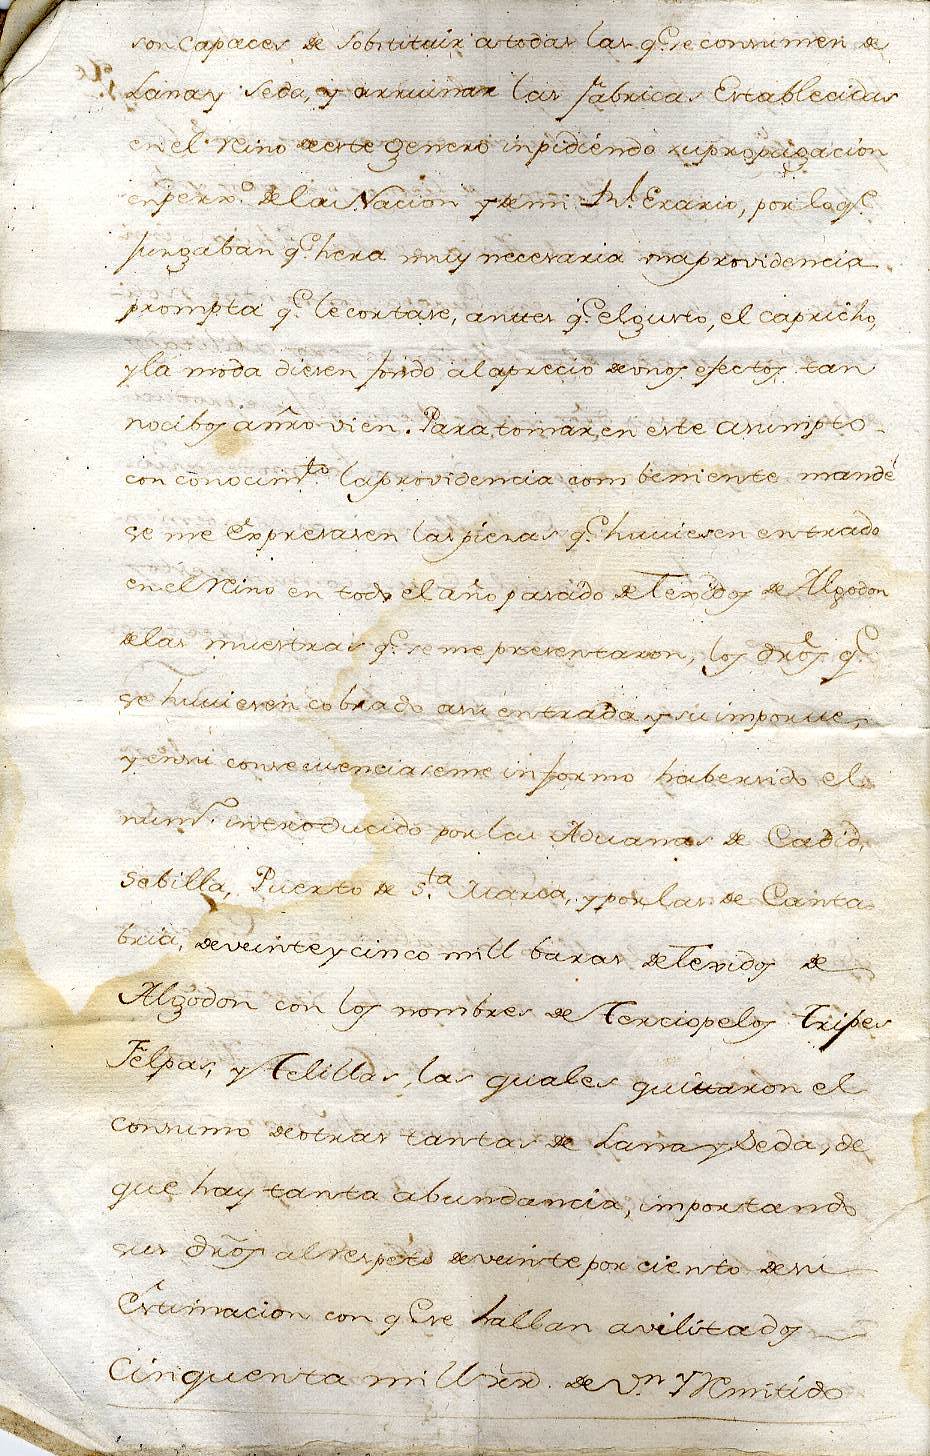 son capaces de sobstituir a todas las q.e se consumen de
Lana y Seda, y arruinar las fabricas Establecidas
en el Reino de este genero inpidiendo su propagacion
en perx.o de la Nacion y de mi Rl. Erario, por lo q.e
juzgaban q.e hera muy necesaria una providencia
prompta q.e le cortase, antes q.e el gusto, el capricho,
y la moda diesen fondo al aprecio de unos efectos tan
nocibos a ñro vien. Para tomar en este asumpto
con conocim.to la providencia combeniente mandé
se me Expresasen las piezas q.e huviesen entrado
en el Reino en todo el año pasado de Texidos de Algodon
de las muestras q.e se me presentaron, los dros q.e
se huviesen cobrado a su entrada y su importe,
y en su consecuencia se me informo haber sido el
num.o introducido por las Aduanas de Cadid,
Sebilla, Puerto de S.ta Maria, y por las de Canta
bria, de veinte y cinco mill baras de Texidos de
Algodon con los nombres de Terciopelos Tripes
Felpas, y Telillas, las quales quitaron el
consumo de otras tantas de Lana y Seda, de
que hay tanta abundancia, importando
sus dros al respeto de veinte por ciento de su
Estimacion con q.e se hallan avilitados
Cinquenta mill rr.s de v.n y Remitido